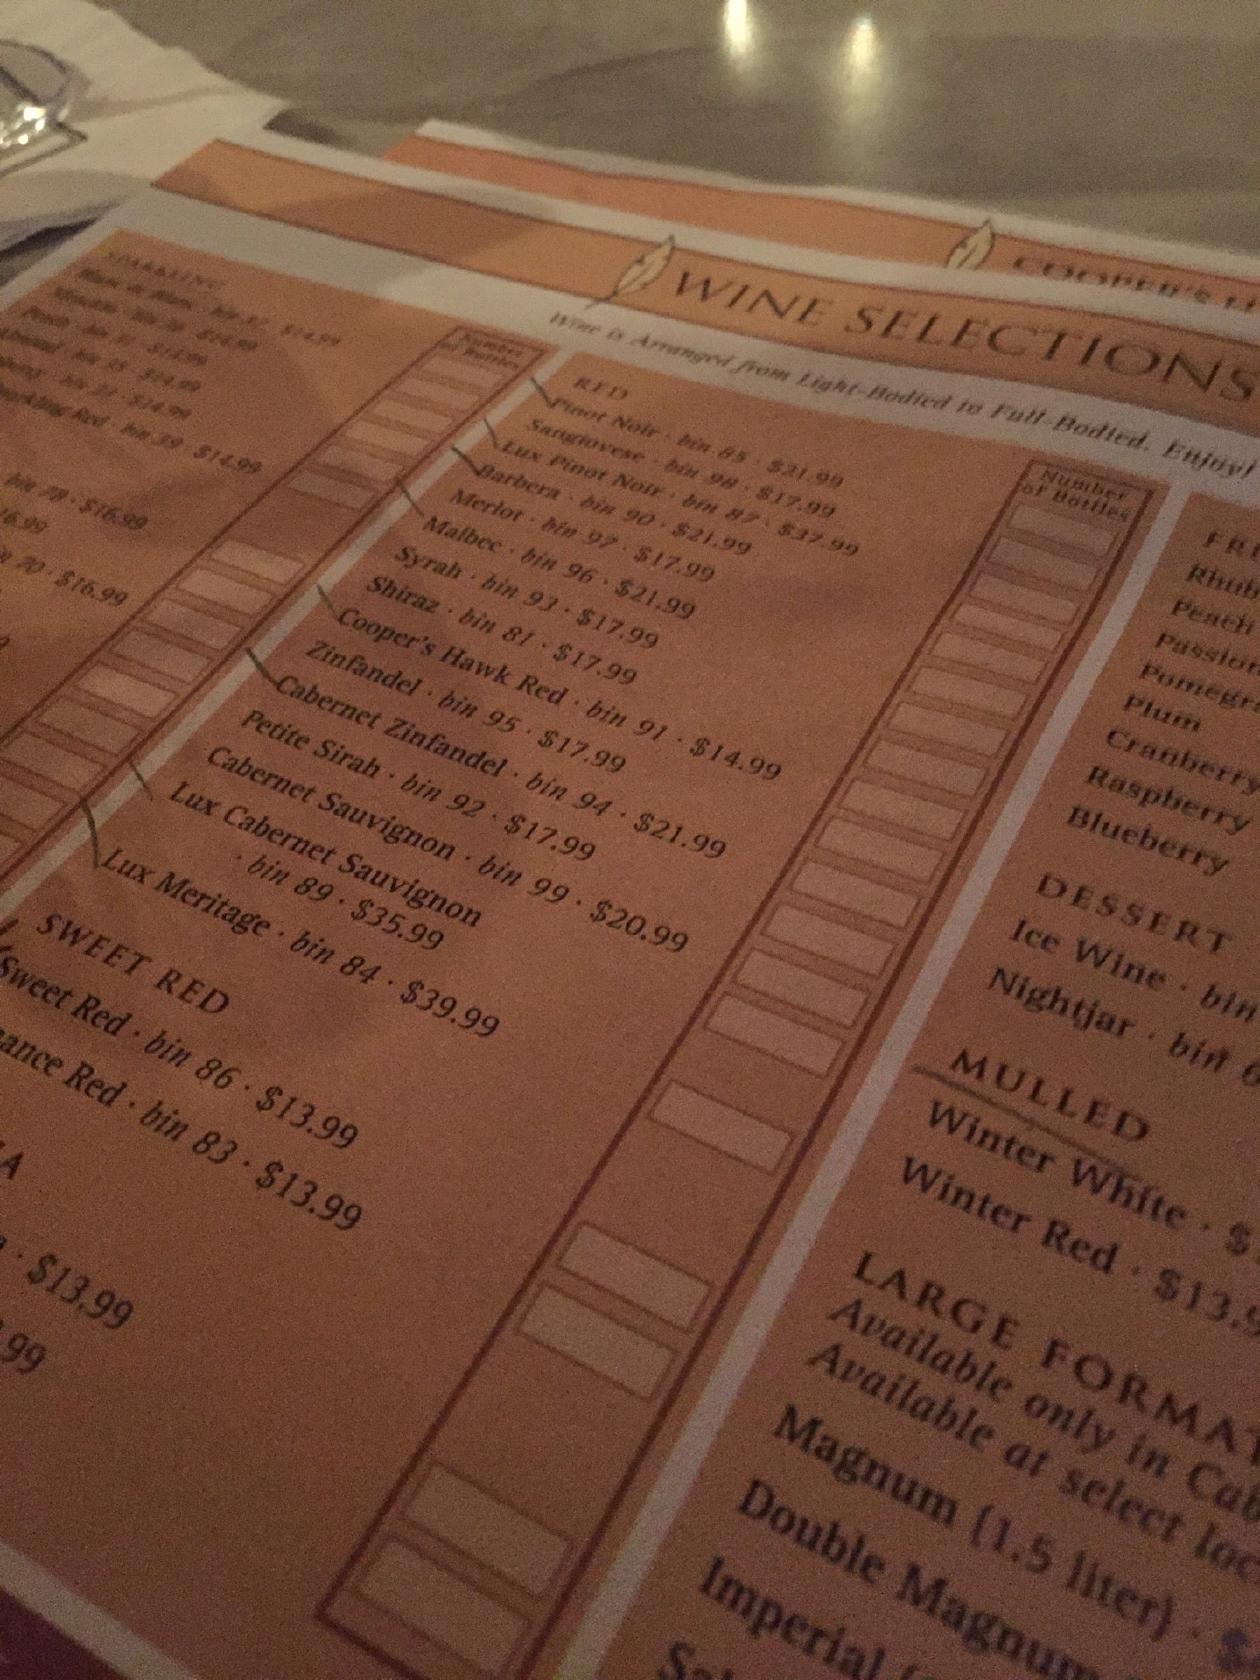 COOPER'S
WINE SELECTIONS
Wine is Arranged from Light-Bodied to Full-Bodied. Enjoy!
SPARKLING
Blanc de Blanc · bin 37 · $14.99
$14.99
$14.99
$14.99
$14.99
Sparkling Red · bin 39 · $14.99
bin 78 · $16.99
16.99
70 · $16.99
Number
of Bottles
RED
Pinot Noir · bin 85 · $21.99
Sangiovese · bin 98 · $17.99
Lux Pinot Noir · bin 87 · $37.99
Barbera · bin 90 · $21.99
Merlot · bin 97 · $17.99
Malbec · bin 96 · $21.99
Syrah · bin 93 · $17.99
Shiraz · bin 81 · $17.99
Cooper's Hawk Red · bin 91 · $14.99
Zinfandel · bin 95 · $17.99
Cabernet Zinfandel · bin 94 · $21.99
Petite Sirah · bin 92 · $17.99
Cabernet Sauvignon · bin 99 · $20.99
Lux Cabernet Sauvignon
· bin 89 · $35.99
Lux Meritage · bin 84 · $39.99
SWEET RED
Sweet Red · bin 86 · $13.99
ance Red · bin 83 · $13.99
· $13.99
.99
Number
of Bottles
FR
Rhub
Peach
Passion
Pomegr
Plum
Cranberry
Raspberry
Blueberry
DESSERT
Ice Wine · bin
Nightjar · bin 6
MULLED
Winter White · $
Winter Red · $13.9
LARGE FORMAT
Available only in Cab
Available at select loc
Magnum (1.5 liter) · $
Double Magnum
Imperial (
Sal